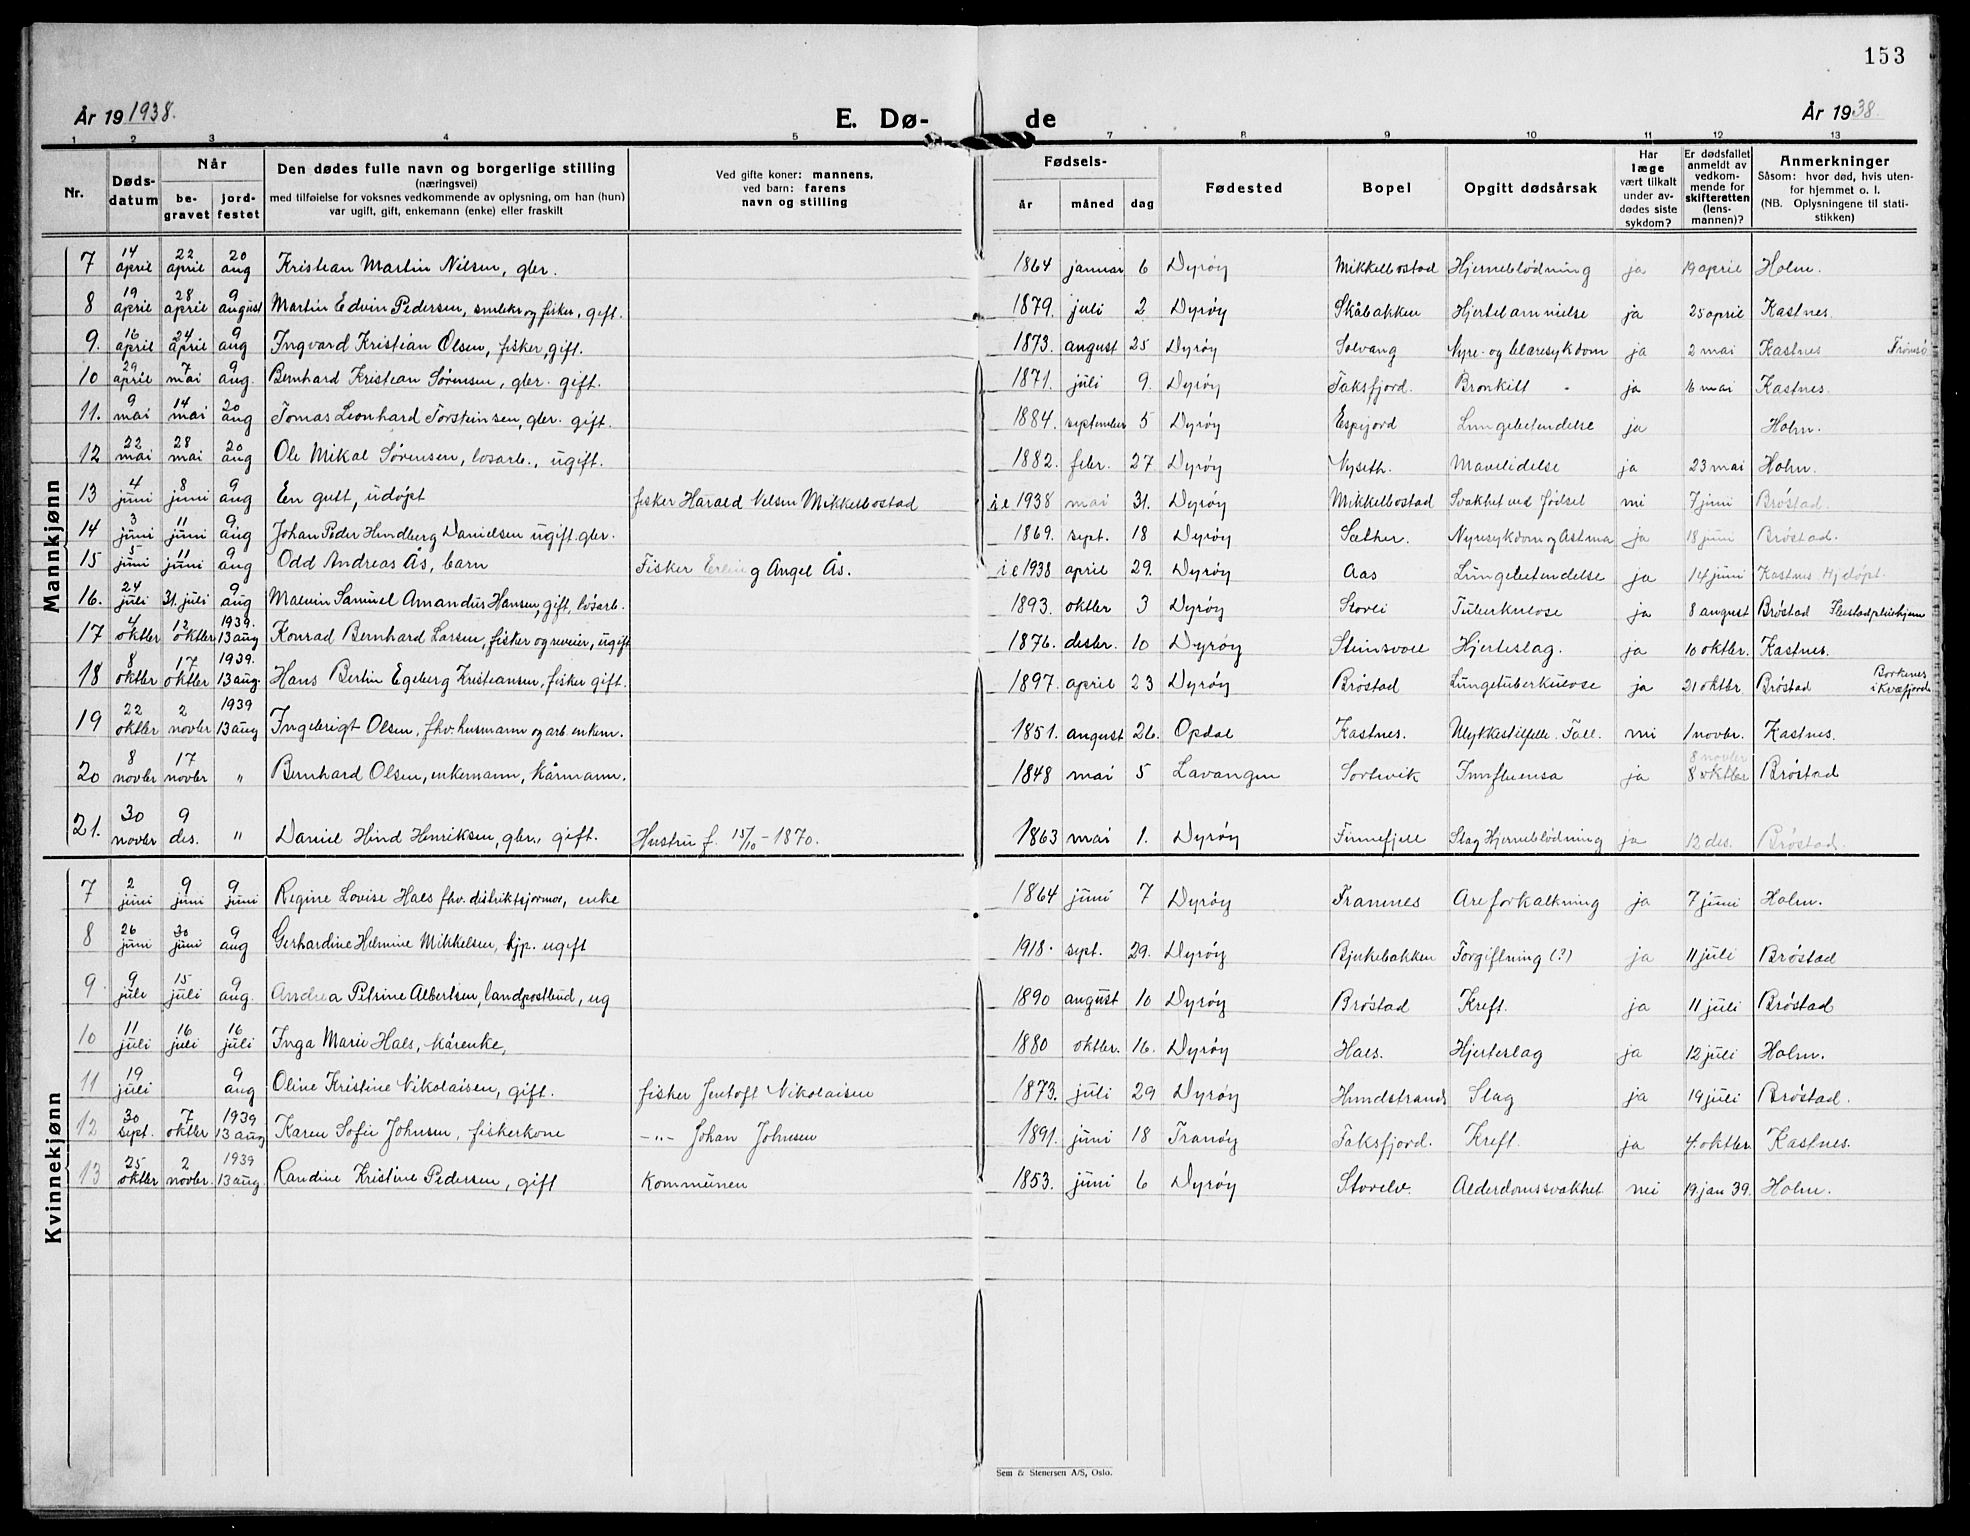 153
År 19 1938.
E. Dø-
de
År 1938.
1 2 3 4 5 7 8 9 10 11 12 13
Nr.
Dødsdatum
Når
begravet
jordfestet
Den dødes fulle navn og borgerlige stilling
(næringsvei)
med tilføielse for voksnes vedkommende av oplysning, om han (hun)
var ugift, gift, enkemann (enke) eller fraskilt
Ved gifte koner: mannens,
ved barn: farens
navn og stilling
Fødsels-
år måned dag
Fødested
Bopel
Opgitt dødsårsak
Har
læge
vært tilkalt
under av-
dødes siste
sykdom?
Er dødsfallet
anmeldt av
vedkom-
mende for
skifteretten
(lens-
mannen)?
Anmerkninger
Såsom: hvor død, hvis uten-
for hjemmet o. l.
(NB. Oplysningene til stati-
stikken)
Mannkjønn
7 14 april 22 april 20 aug Kristian Martin Nilsen, gbr. 1864 januar 6 Dyrøy Mikkelbostad Hjerneblødning ja 19 april Holm.
8 19 april 28 april 9 august Martin Edvin Pedersen, småbr. og fisker, gift. 1879. juli 2 Dyrøy Skåbakken Hjertelammelse ja 25 april Kastnes.
9. 16 april 24 april 9 aug Ingvard Kristian Olsen, fisker, gift. 1873. august 25 Dyrøy Solvang Nyre- og blæresykdom ja 2 mai Kastnes Tromsø
10 29 april 7 mai 9 aug. Bernhard Kristian Sørensen, gbr. gift. 1871. juli 9. Dyrøy Faksfjord. Bronkitt - ja 6 mai Kastnes.
11. 9 mai 14 mai 20 aug Tomas Leonhard Torsteinsen, gbr. gift. 1884. september 5 Dyrøy Espejord Lungebetendelse ja Holm.
12 22 mai 28 mai 20 aug Ole Mikal Sørensen, løsarb., ugift. 1882. febr. 27 Dyrøy Nyseth. Mavelidelse ja 23 mai Holm.
13 4 juni 8 juni 9 aug En gutt, udøpt fisker Harald Nilsen Mikkelbostad i e 1938 mai 31. Dyrøy Mikkelbostad Svakhet ved fødsel nei 7 juni Brøstad.
14 3 juni 11 juni 9 aug Johan Peder Hundberg Danielsen ugift. gbr. 1869. sept. 18 Dyrøy Sæther. Nyresykdom og Astma ja 18 juni Brøstad.
15 5 juni 11 juni 9 aug Odd Andreas Ås, barn Fisker Erling Angel Ås. i e 1938 april 29. Dyrøy Aas Lungebetendelse ja 14 juni Kastnes Hjdøpt.
16. 24 juli 31. juli 9 aug Malvin Samuel Amandus Hansen, gift, løsarb. 1893. oktbr 3 Dyrøy Storli Tuberkulose ja 8 august Brøstad
17 4 oktbr 12 oktbr 1939. 13 aug Konrad Bernhard Larsen, fisker og , ugift 1876. desbr. 10 Dyrøy Steinsvoll Hjerteslag. ja 10 oktbr. Kastnes.
18 8 oktbr 17 oktbr 1939. 13 aug. Hans Bertin Egeberg Kristiansen, fisker gift. 1897. april 23 Dyrøy Brøstad Lungetuberkulose ja 21 oktbr Brøstad Borkenes i Kvæfjord
19 22 oktbr 2 novbr 1939 13 aug Ingebrigt Olsen, fhv. husmann og arb. enkem. 1851. august 26. Opdal Kastnes. Ulykkestilfelle. Fall. nei 1 novbr. Kastnes.
20 8 novbr 17 novbr " Bernhard Olsen, enkemann, kårmann. 1848 mai 5 Lavangen Sørtevik Innfluensa ja 8 novbr 8 oktbr Brøstad
21. 30 novbr 9 des. " Daniel Hind Henriksen, gbr., gift. Hustru f. 15/10 - 1870. 1863 mai 1. Dyrøy Finnefjell Slag Hjerneblødning ja 12 des. Brøstad.
Kvinnekjønn
7 2 juni 9 juni 9 juni Regine Lovise Hals fhv. distriktsjormor, enke 1864 juni 7 Dyrøy Framnes Areforkalkning ja 7 juni Holm.
8 26 juni 30 juni 9 aug Gerhardine Helmine Mikkelsen, hjp. ugift 1918. sept. 29. Dyrøy Bjerkebakken Forgiftning (?) ja 11 juli Brøstad
9. 9 juli 15 juli 9 aug. Andrea Petrine Albertsen, landpostbud, ug 1890 august 10 Dyrøy Brøstad Kreft. ja 11 juli Brøstad
10 11 juli 16 juli 16 juli Inga Marie Hals, kårenke, 1880 oktbr. 16. Dyrøy Hals. Hjerteslag ja 12 juli Holm.
11 19 juli 9 aug Oline Kristine Nikolaisen, gift. fisker Jentoft Nikolaisen 1873. juli 29 Dyrøy Hundstrand Slag ja 19 juli Brøstad.
12 30 sept. 7 oktbr 1939 13 aug Karen Sofie Johnsen, fiskerkone -"- Johan Johnsen 1891. juni 18 Tranøy Faksfjord. Kreft. ja 4. oktbr. Kastnes.
13 25 oktbr 2 novbr. 1939 13 aug. Randine Kristine Pedersen, gift kommunen 1853. juni 6 Dyrøy Storelv. Alderdomssvakhet. nei 19. jan 39. Holm.
Sem & Stenersen A/S, Oslo.